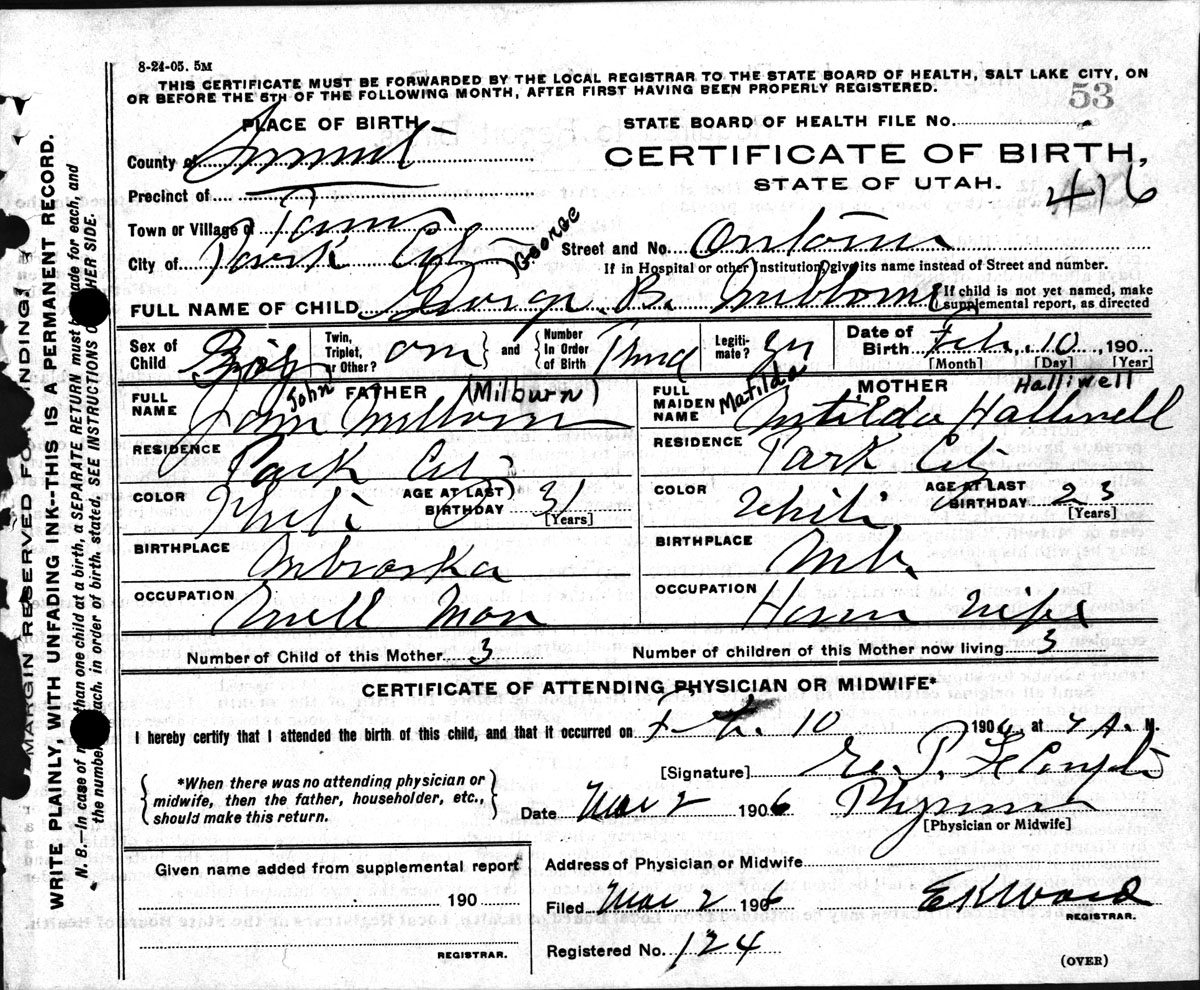 8-24-05. 5M
THIS CERTIFICATE MUST BE FORWARDED BY THE LOCAL REGISTRAR TO THE STATE BOARD OF HEALTH, SALT LAKE CITY, ON
OR BEFORE THE 5TH OF THE FOLLOWING MONTH, AFTER FIRST HAVING BEEN PROPERLY REGISTERED.
53
PLACE OF BIRTH
STATE BOARD OF HEALTH FILE NO.
County of Summit
CERTIFICATE OF BIRTH,
STATE OF UTAH.
416
Precinct of
Town or Village of
George
City of Park City
Street and No.
If in Hospital or other Institution, give its name instead of Street and number.
FULL NAME OF CHILD George B. Milborn
If child is not yet named, make
supplemental report, as directed
Sex of Child Boy
Twin, Triplet, or Other?
and
Number In Order of Birth
Legiti- mate?
Date of Birth Feb. 10, 190
[Month] [Day] [Year]
John (Milburn)
Matilda Halliwell
FULL NAME FATHER John Milborn
FULL MAIDEN NAME MOTHER Matilda Halliwell
RESIDENCE Park City
RESIDENCE Park City
COLOR White AGE AT LAST BIRTHDAY 31 [Years]
COLOR White AGE AT LAST BIRTHDAY 23 [Years]
BIRTHPLACE Nebraska
BIRTHPLACE
OCCUPATION Mill Man
OCCUPATION House Wife
Number of Child of this Mother 3
Number of children of this Mother now living 3
CERTIFICATE OF ATTENDING PHYSICIAN OR MIDWIFE*
I hereby certify that I attended the birth of this child, and that it occurred on Feb. 10 1906, at 4 A. M.
[Signature] E. P. Le Compte
*When there was no attending physician or
midwife, then the father, householder, etc.,
should make this return.
Date Mar 2 1906
Physician
[Physician or Midwife]
Given name added from supplemental report
190
REGISTRAR.
Address of Physician or Midwife
Filed Mar 2 1906
E K Ward
REGISTRAR.
Registered No. 124
(OVER)
MARGIN RESERVED FOR BINDING
WRITE PLAINLY, WITH UNFADING INK--THIS IS A PERMANENT RECORD.
N. B.—In case of than one child at a birth, a SEPARATE RETURN must made for each, and
the number each, in order of birth, stated. SEE INSTRUCTIONS OTHER SIDE.